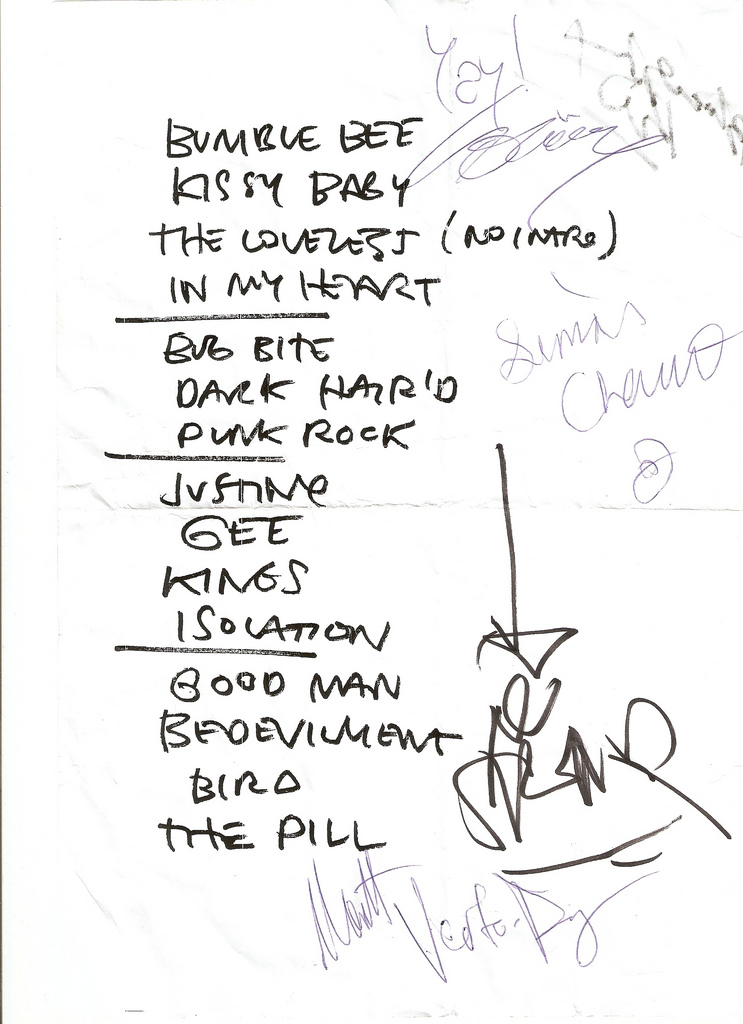 Yay!
BUMBLE BEE
KISSY BABY
THE LOVELESS (NO INTRO)
IN MY HEART
BUG BITE
DARK HAIR'D
PUNK ROCK
JUSTINE
GEE
KINGS
ISOLATION
GOOD MAN
BEDEVILMENT
BIRD
THE PILL
Matt